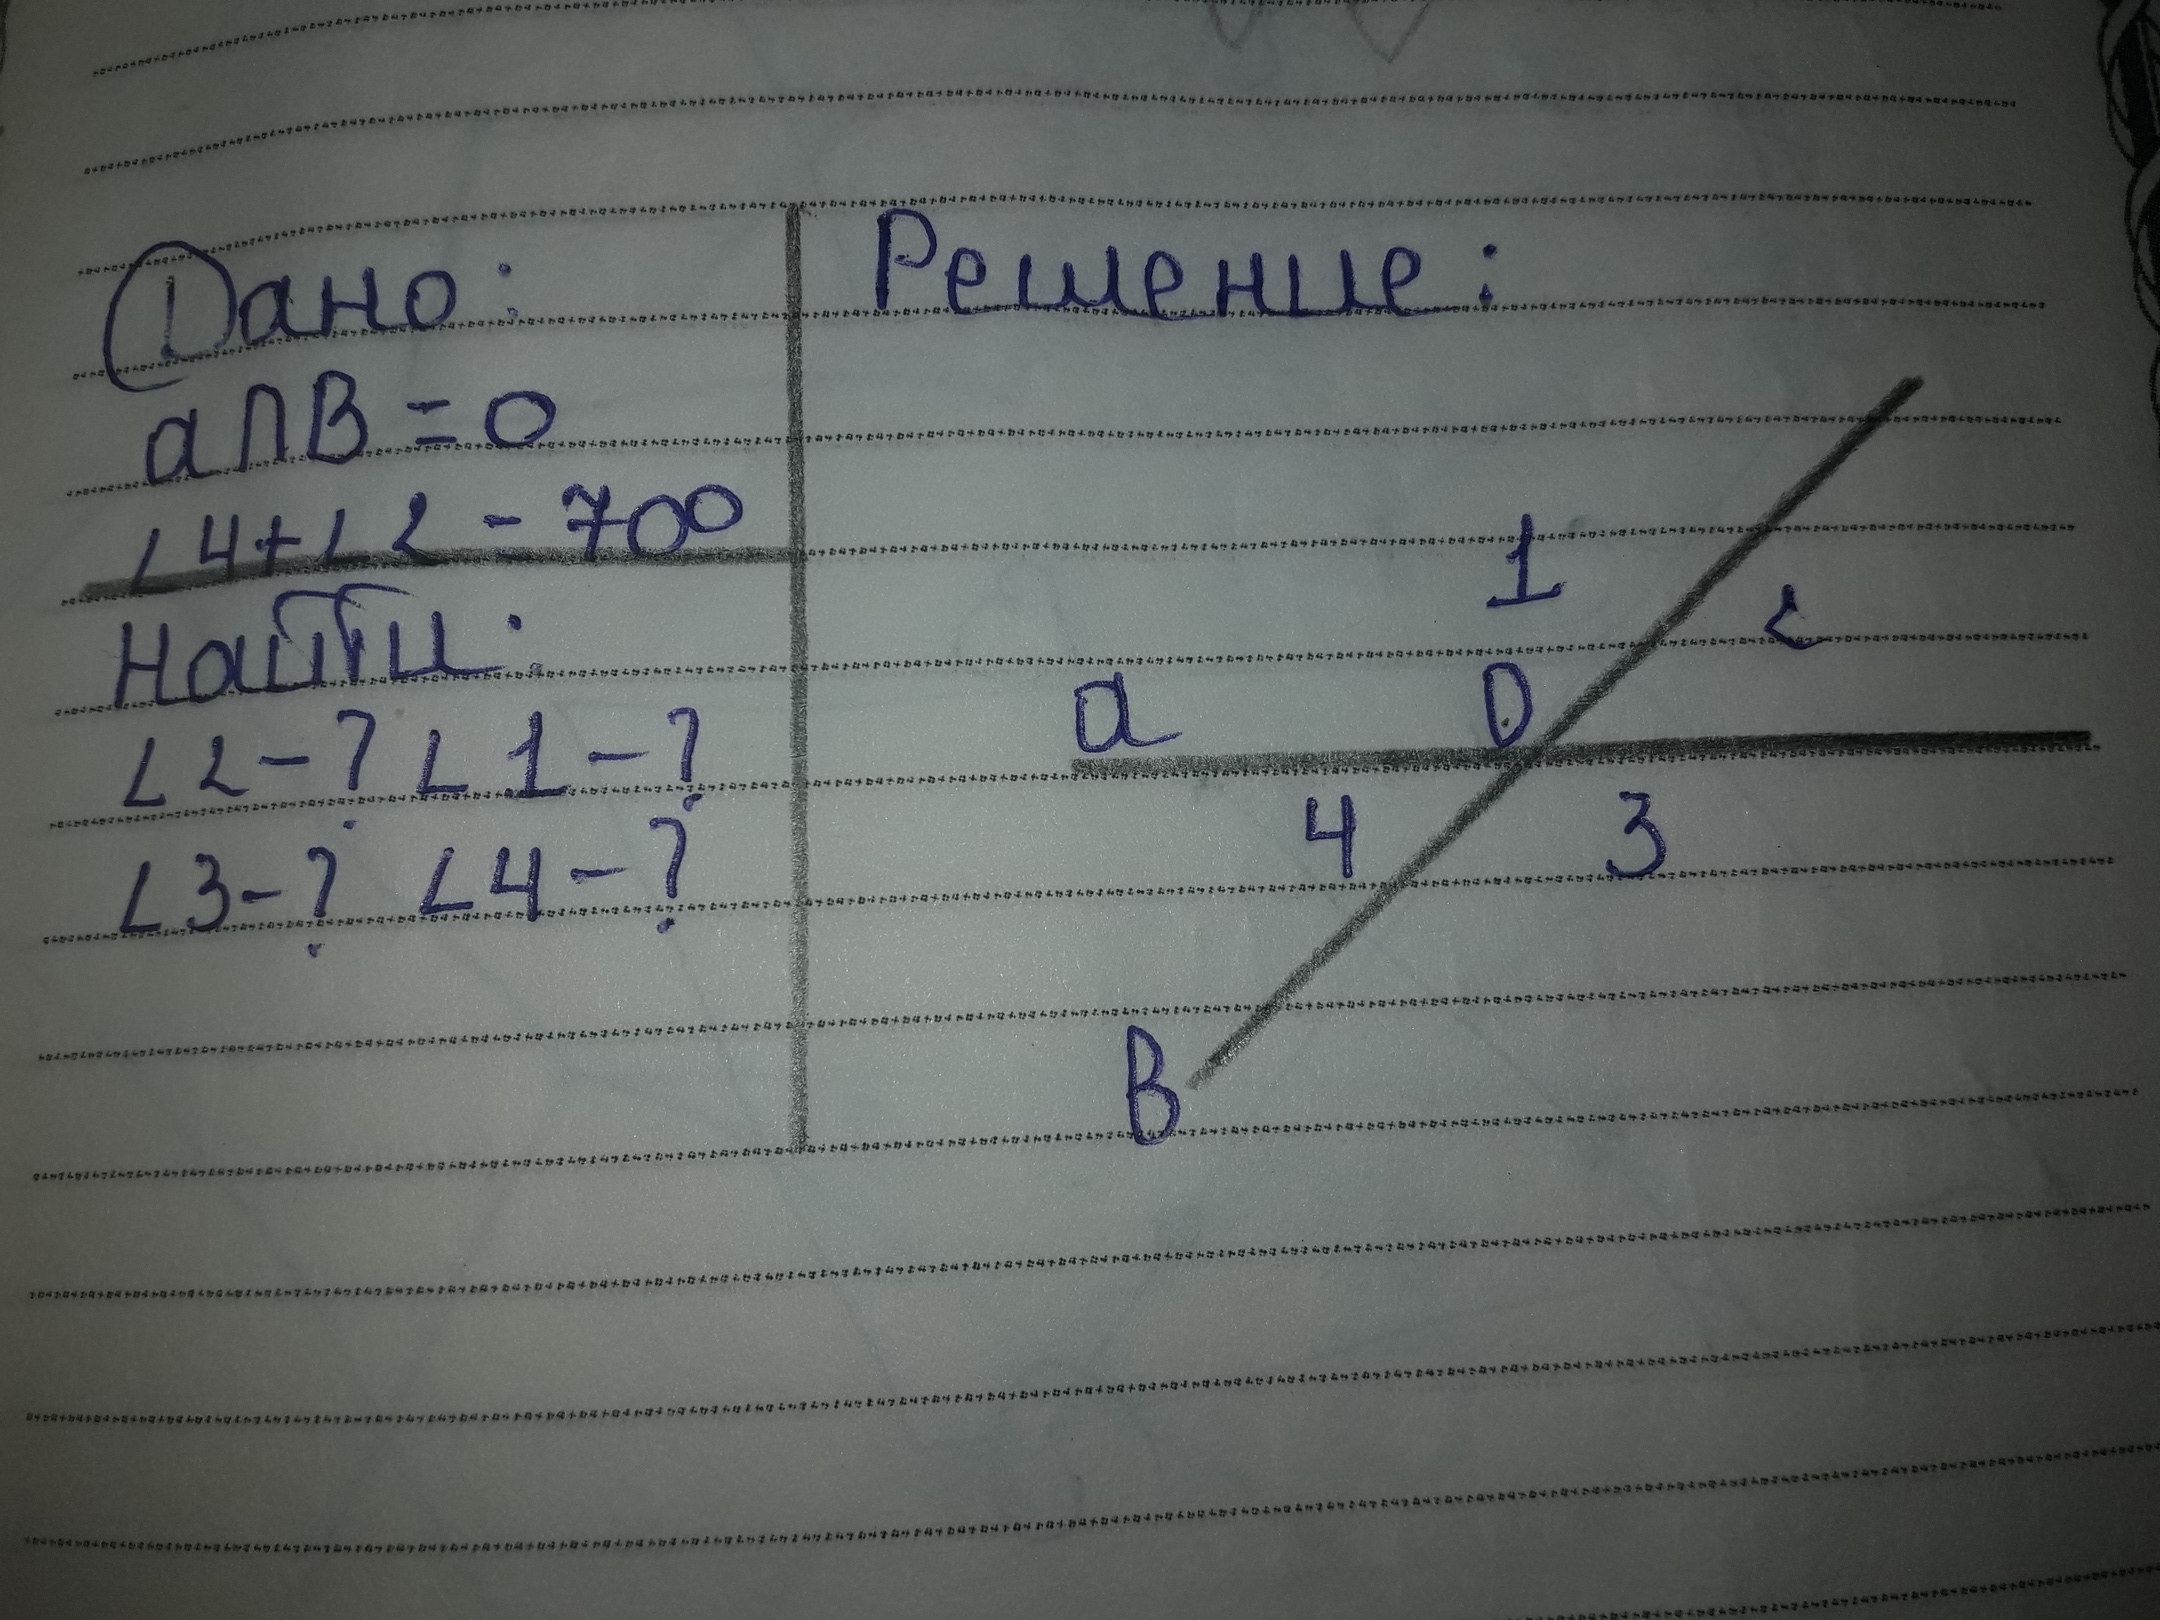 Дано:
a∩B = 0
∠4+∠2 = 70°
Найти:
∠2-? ∠1-?
∠3-? ∠4-?
Решение:
1
2
a
0
4
3
B